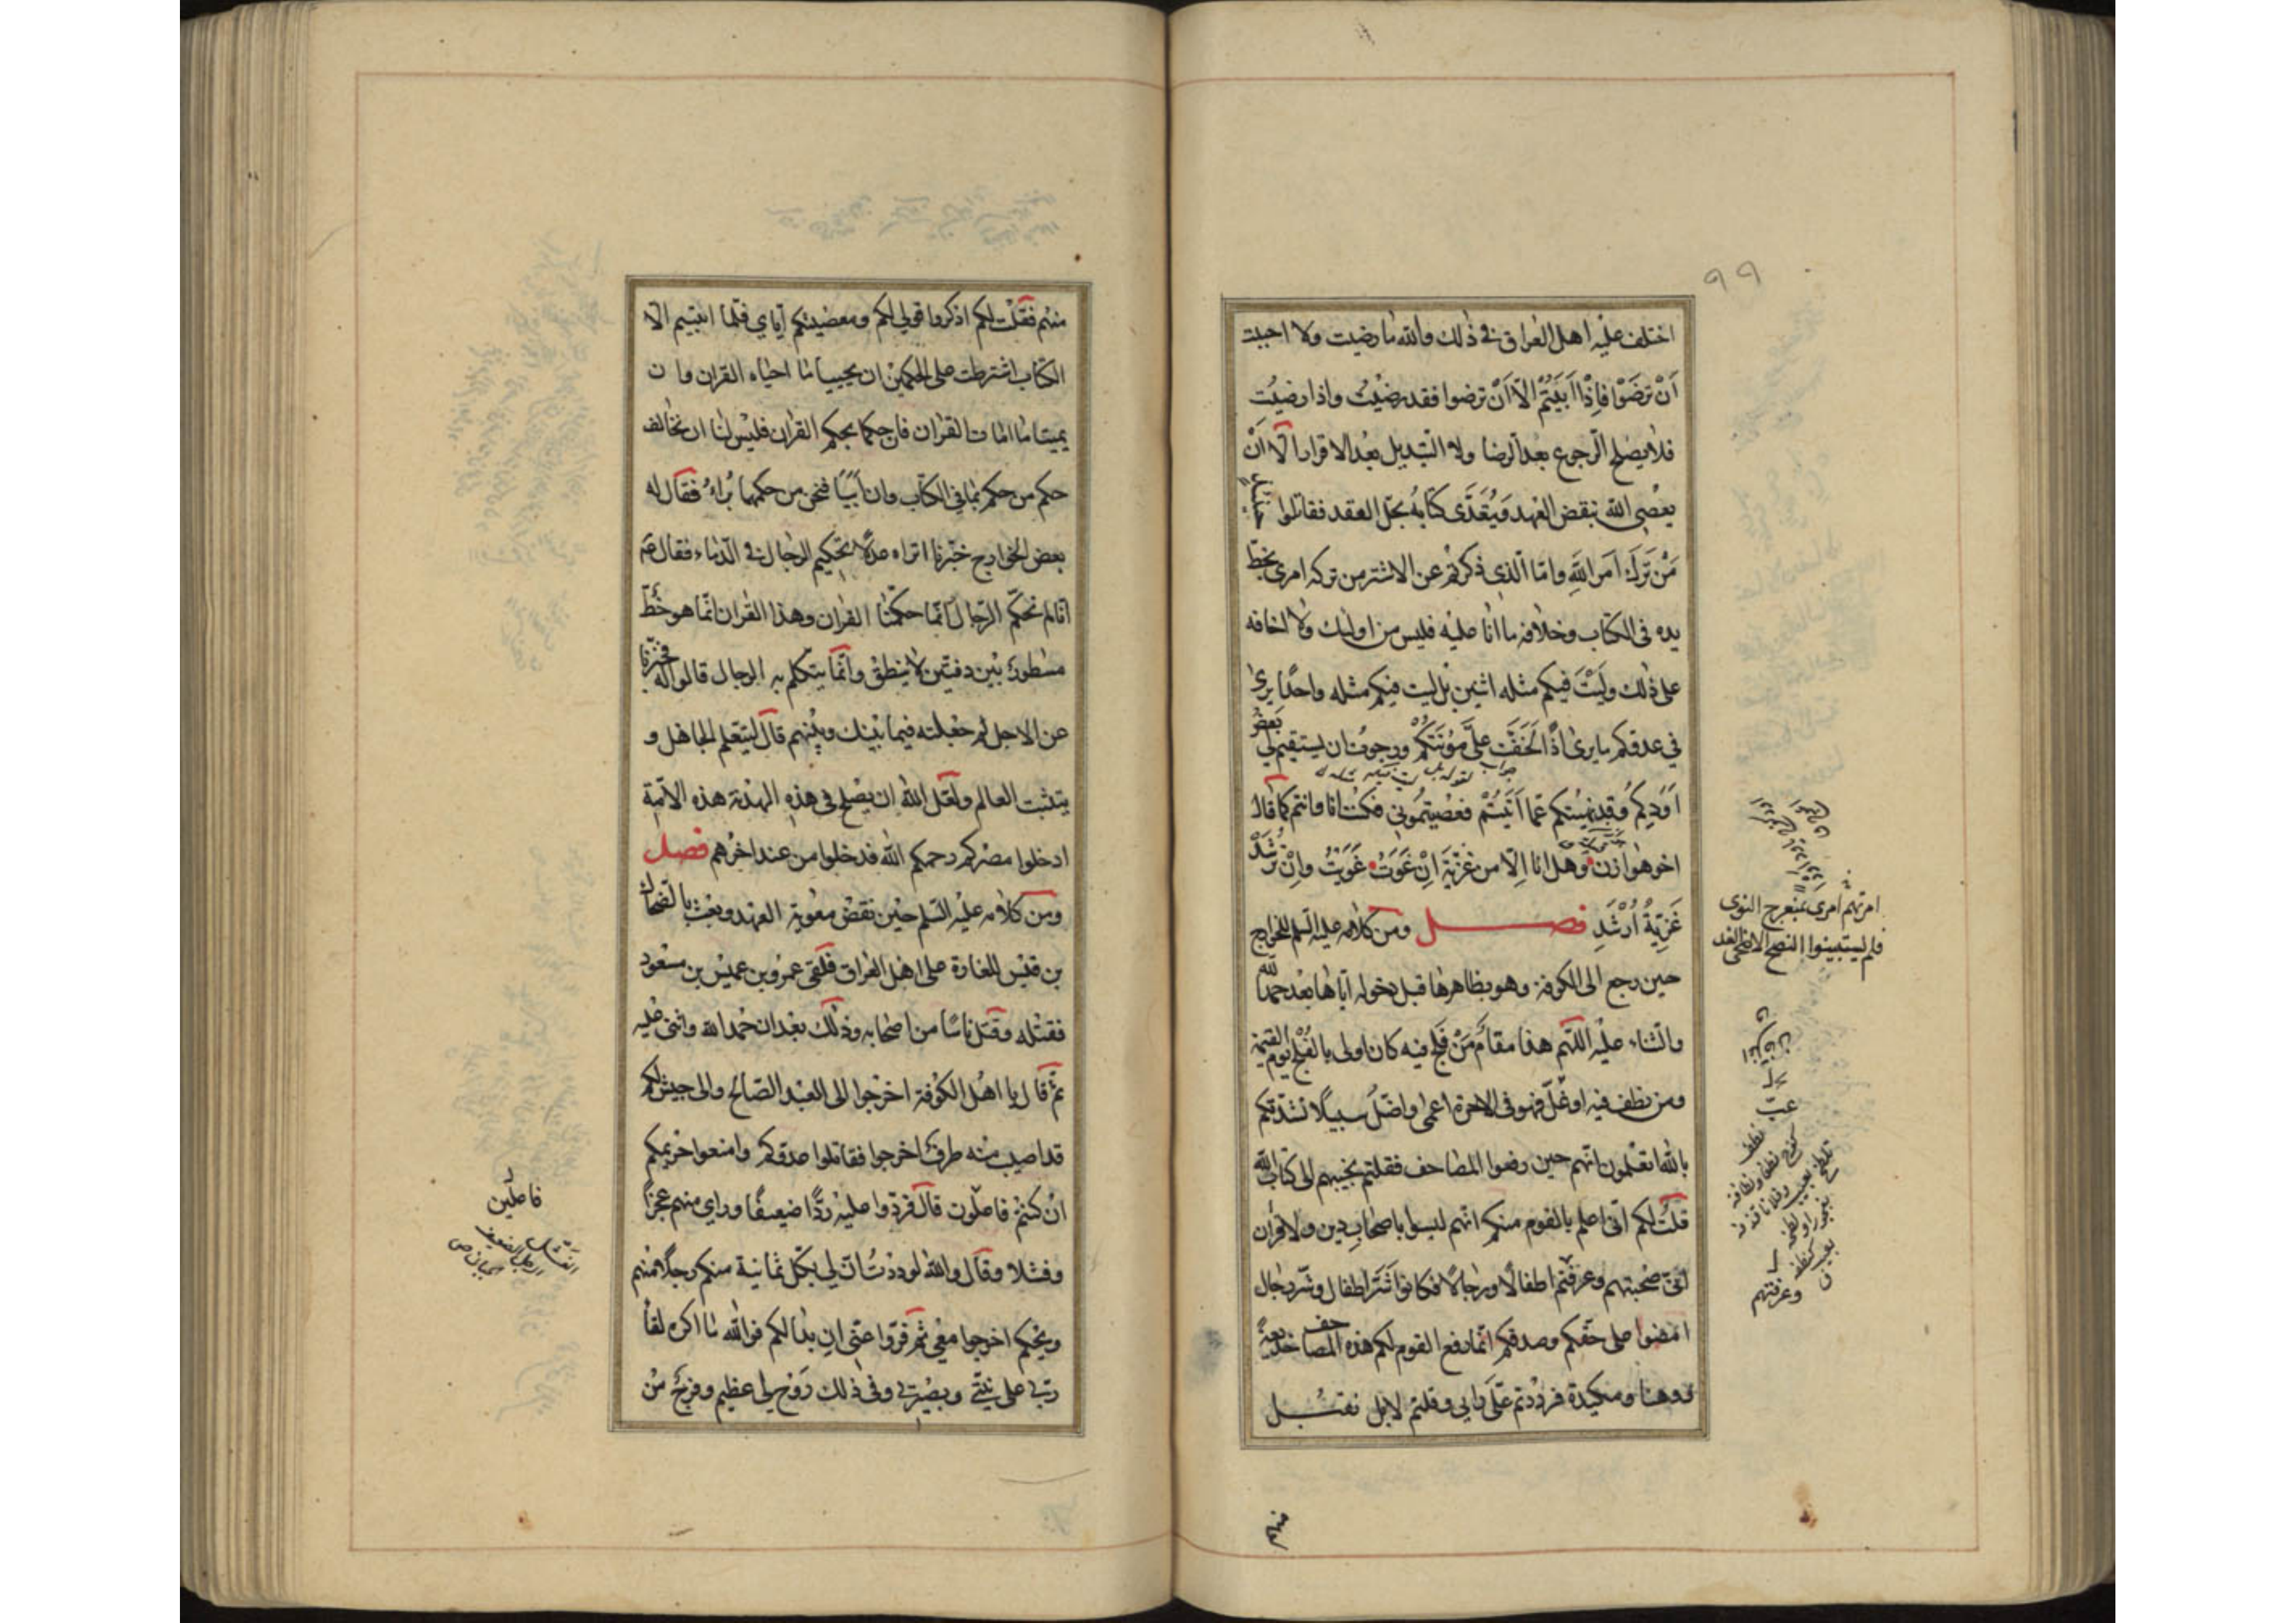 ٩٩
اختلف عليه اهل العراق فى ذلك والله ما رضيت ولا احببت
اَنْ تَرضَوْا فَاِذْا اَبَيْتُمْ الّا اَنْ ترضوا فقد رضيْتُ واذا رضيتُ
فلا يصلح الرجوع بعد الرضا ولا التبديل بعد الاقرار الّا اَنْ
يعْصِى الله بنقض العهد وَيُتَعَدَّى كتابُه بحَلّ العقد فقاتلوا حينئذ
مَنْ تَرَكَ اَمَر اللَّهِ وامّا الّذى ذكرتم عن الاشتر من تركه امرى بخطّ
يده فى الكتاب وخلافه ما انا عليه فليس من اولئك ولا اخافه
على ذلك وليْتَ فيكم مثله اثنين بل ليت فيكم مثله واحدًا يرى
في عدوكم ما يرى اذًا لَخَفَّت علىَّ مَؤنَتكُمْ ورجوت ان يستقيم لي بَعضُ
اَوَدِكُم وقد نهيتكم عمّا اَتَيْتُمْ فعصيتمُوني فكنت انا وانتم كما قال
اخو هوازن وهل انا اِلّا من غزيّةَ اِنْ غَوَتْ غَوَيْتُ واِنْ تَرْشُدْ
غَزِيّةُ اَرْشُدِ فصل ومن كلامه عليه السلم للخوارج
حين رجع الى الكوفة وهو بظاهرها قبل دخوله ايّاها بعد حمد الله
والثناء عليْه اللّهم هذا مقامُ مَنْ فَلَج فيه كان اولى بالفَلْج يوم القيمة
ومن نطف فيه او غلّ فهو فى الاخرة اعمى واضلّ سبيلًا نشدتكم
بالله اتعلمون انّهم حين رفعوا المصاحف فقلتم نجيبهم الى كتاب الله
قلْتُ لكم انّى اعلم بالقوم منكم انّهم ليسوا باصحابِ دين ولا قرآن
انّى صحبتهم وعرفتم اطفالًا ورجالًا فكانوا شَرّ اطفال وشرّ رجال
امضوا على حقّكم وصدقكم انّما رفع القوم لكم هذه المصاحف خديعةً
ووهنا ومكيدة فرددتم علَّى رايى وقلتم لا بل نقبل
امرتهم امرى بمنعرج اللوى
فلم يستبينوا النصح الا ضحى الغد
وعرفتهم
منهم
منهم فقلْت لكم اذكروا قولى لكم ومعصيتكم ايّاى فلمّا ابيتم الّا
الكتاب اشترطت على الحكمين ان يحييا ما احياه القران وان
يميتا ما امات القران فان حكما بحكم القران فليْس لنا ان نخالف
حكم من حكم بما فى الكتاب وان اَبَيًا فنحن من حكمهما بُراءُ فقال له
بعض الخوارج خبّرنا اتراه عدلًا تحكيم الرجال فى الدّماء فقال ع‍م
انّا لم نحكّم الرّجال انّما حكّمنا القران وهذا القران انّما هو خطّ
مسْطورٌ بيْن دفتين لا ينطق وانّما يتكلم به الرجال قالوا له فخبّرنا
عن الاجل لم جعلته فيما بيْنك وبيْنهم قال ليتعلم الجاهل و
يتثبت العالم ولعلّ الله ان يصلح فى هذه الهدنة هذه الامّة
ادخلوا مصركم رحمكم الله فدخلوا من عند اخرهم فصل
ومن كلامه عليْه السّلم حيْن نقض معوية العهد وبعث بالضحاك
بن قيْس للغارة على اهل العراق فلَقى عمرو بن عميْس بن مسْعود
فقتله وقتل ناسًا من اصحابه وذلك بعْد ان حمد الله واثنى عليه
ثم قال يا اهْل الكوْفة اخرجوا الى العبْد الصّالح والى جيشٍ لكم
قد اصيب منه طرفٌ اخرجوا فقاتلوا عدوكم وامنعوا حريمكم
انْ كنتمْ فاعلون قال فردّوا عليْه ردًّا ضعيفًا وراى منهم عجزًا
وفشلا وقال والله لوددْتُ انّ لي بكلّ ثمانية منكم رجلًا منهم
ويْحكم اخرجوا معى ثم فرّوا عنّى ان بدا لكم فوالله ما اكره لقاءَ
ربّى على نيّتى وبصيْرتى وفى ذلك رَوْح لى عظيم وفرجٌ منْ
فاعلين
الفشل
الرجل الضعيف
الجبان ص